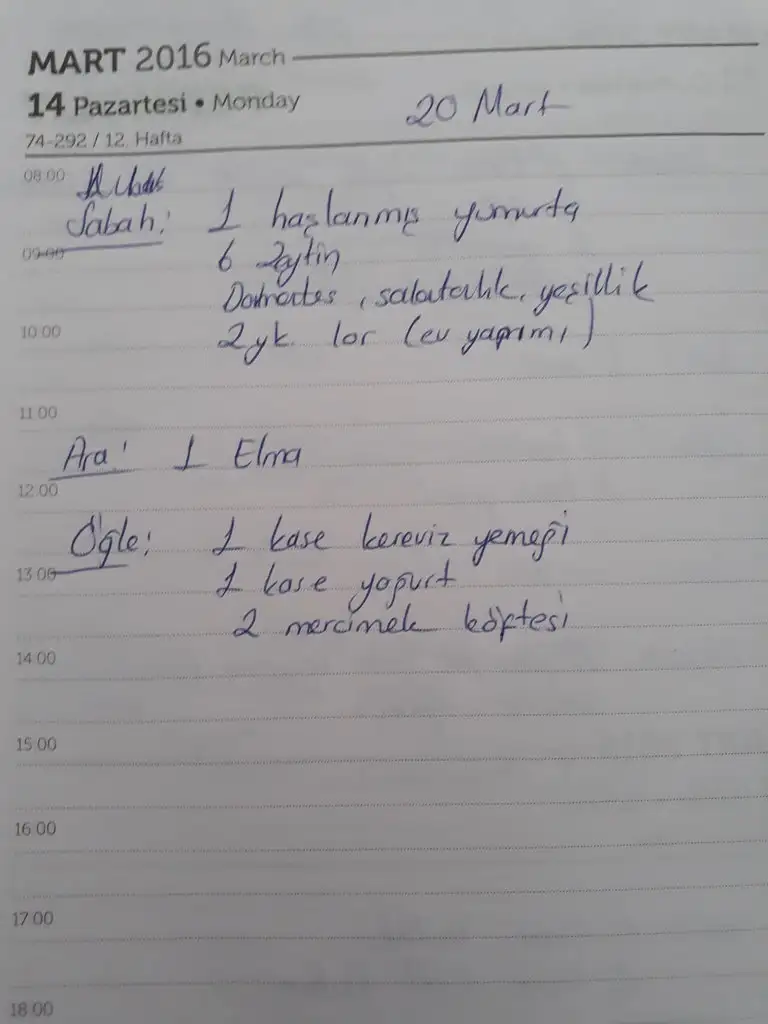 MART 2016 March
14 Pazartesi • Monday
20 Mart
74-292 / 12. Hafta
08:00
Sabah: 1 haşlanmış yumurta
09:00
6 zeytin
Domates, salatalık, yeşillik
10:00
2 yk. lor (ev yapımı)
11:00
Ara: 1 Elma
12:00
Öğle: 1 kase kereviz yemeği
13:00
1 kase yoğurt
2 mercimek köftesi
14:00
15:00
16:00
17:00
18:00